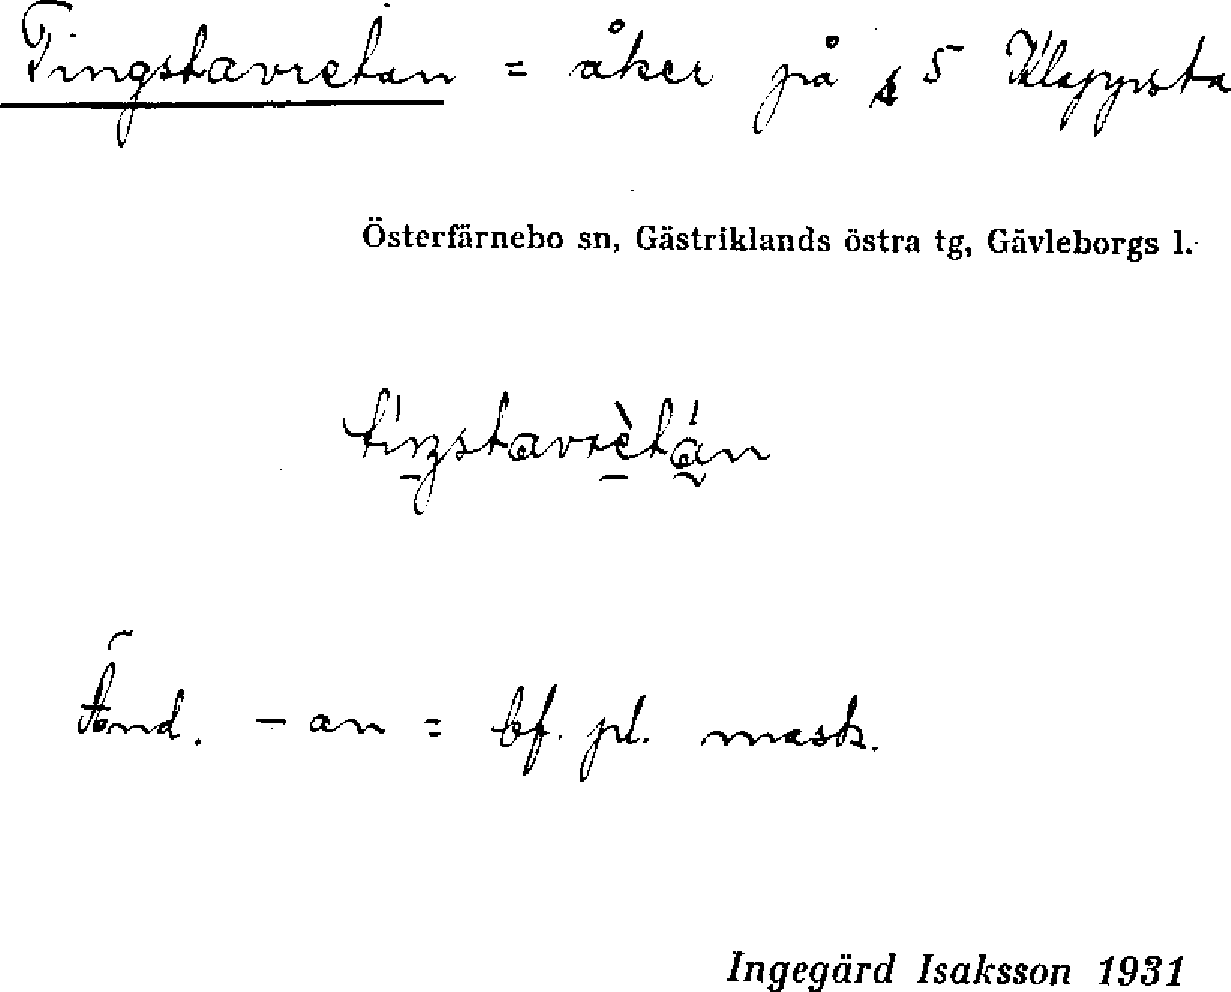 Tingstavretan = åker på s 5 Klappsta
Österfärnebo sn, Gästriklands östra tg, Gävleborgs l.
Änd. - an = bf. pl. mask.
Ingegärd Isaksson 1931